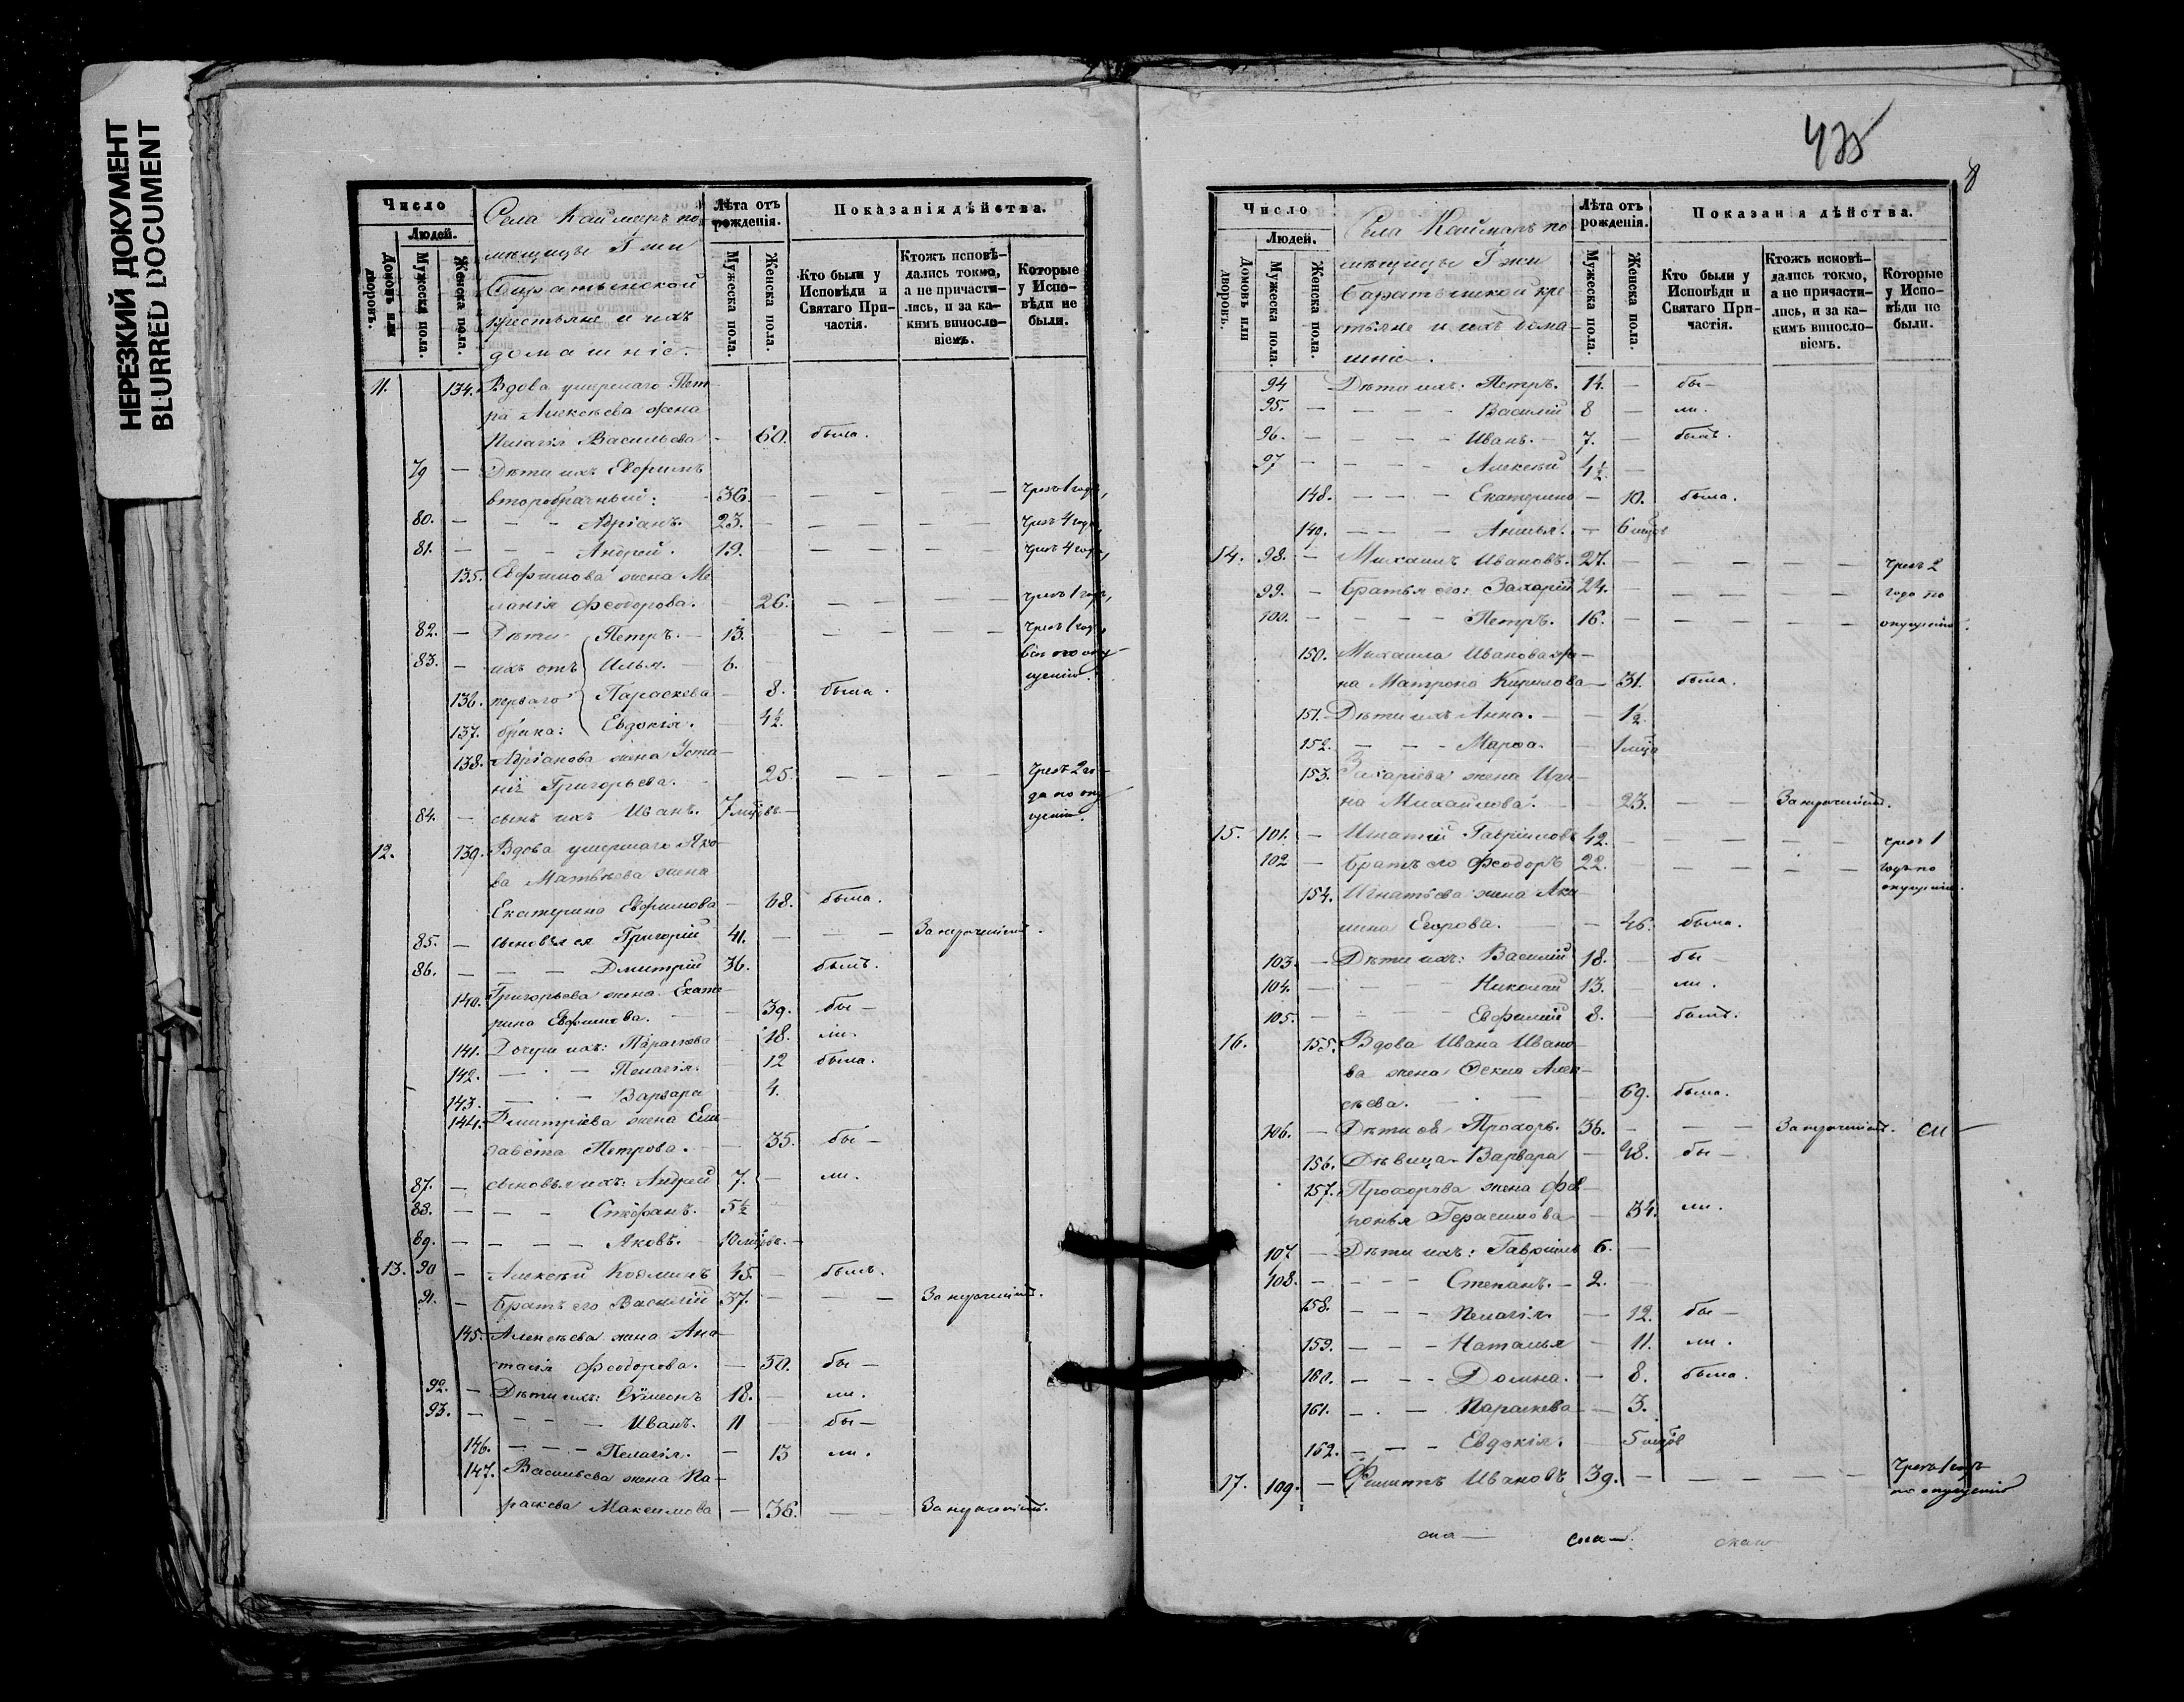 НЕРЕЗКИЙ ДОКУМЕНТ
BLURRED DOCUMENT
Число
Людей.
Домовъ или дворовъ.
Мужеска пола.
Женска пола.
Села Каймаръ по
мѣщицы Гжи
Баратынской
крестьяне и ихъ
домашніе.
Лѣта отъ рожденія.
Мужеска пола.
Женска пола.
Показанія дѣйства.
Кто были у Исповѣди и Святаго Причастія.
Ктожъ исповѣдались токмо, а не причастились, и за какимъ винословіемъ.
Которые у Исповѣди не были.
11. 134. Вдова умершаго Пет-
ра Алексѣева жена
Пелагія Васильева - 60. была.
79 — Дѣти ихъ Евфимъ
второбрачный: 36. — — — — Чрезъ 1 годъ,
80. — — — Адріанъ. 23. — — — — Чрезъ 4 года,
81. — — — Андрей. 19. — — — — Чрезъ 4 года,
135. Евфимова жена Ме
ланія Феодорова. - 26. — — — Чрезъ 1 годъ,
82. — Дѣти Петръ. — 13. — — — Чрезъ 1 годъ,
83. — ихъ отъ Илья. — 6. — всѣ по опу
щенію.
136. перваго Параскева — 8. была.
137. брака: Евдокія. — 4½.
138. Адріанова жена Усти-
нія Григорьева. 25. — — — Чрезъ 2 го-
да по опу
84. — сынъ ихъ Иванъ. 7 мцовъ — щенію.
12. 139. Вдова умершаго Яко-
ва Матвѣева жена
Екатерина Евфимова — 68. была.
85. — сыновья ея Григорій 41. — — — За нерачениемъ.
86. — — — Дмитрій 36. былъ.
140. Григорьева жена Екате-
рина Евфимова. — 39. бы —
141. Дочери ихъ: Параскева 18. ли.
142. — — Пелагія. 12 была.
143. — — Варвара 4.
144. Дмитріева жена Ели-
завета Петрова. — 35. бы —
87. — сыновья ихъ: Андрей 7. — ли.
88. — — — Стефанъ. 5½
89. — — — Яковъ. 10 мцовъ. —
13. 90 — Алексѣй Козминъ 45. — былъ.
91. — братъ его Василій 37. — — — За нерачениемъ.
145. Алексѣева жена Ана-
стасія Феодорова. — 50. бы —
92. — Дѣти ихъ: Сѵмеонъ 18. — ли.
93. — — — — Иванъ. 11 — бы —
146. — — — Пелагія. — 13 ли.
147. Васильева жена Па-
раскева Максимова — 36. — — За нерачениемъ.
8
Число
Людей.
Домовъ или дворовъ.
Мужеска пола.
Женска пола.
Села Каймаръ по
мѣщицы Гжи
Баратынской кре
стьяне и ихъ дома-
шніе.
Лѣта отъ рожденія.
Мужеска пола.
Женска пола.
Показан я дѣйства.
Кто были у Исповѣди и Святаго Причастія.
Ктожъ исповѣдались токмо, а не причастились, и за какимъ винословіемъ.
Которые у Исповѣди не были.
94 Дѣти ихъ: Петръ. 14. — бы —
95. — — — — Василій 8 — ли.
96. — — — — Иванъ. — 7. — былъ.
97 — — — — Алексѣй 4½. —
148. — — — Екатерина — 10. была.
149. — — — Анисья. — 6 мцовъ
14. 98. — Михаилъ Ивановъ. 27. — — — — Чрезъ 2
99. — братья его: Захарій 24. — — — — года по
100. — — — — Петръ. 16. — — — — опущенію.
150. Михаила Иванова же-
на Матрона Кирилова — 31. была.
151. Дѣти ихъ Анна. — 1½.
152. — — — Марфа. — 1 мца
153. Захаріева жена Ири-
на Михайлова. — 23. — — За нерачениемъ.
15. 101. — Игнатій Гавриловъ 42. — — — — Чрезъ 1
102 — братъ его Феодоръ 22. — — — — годъ по
опущенію.
154. Игнатьева жена Аку-
лина Егорова. — 46. была.
103. — Дѣти ихъ: Василій 18. — бы —
104. — — — Николай 13. — ли.
105. — — — Евфимій 8. — былъ.
16. 155. Вдова Ивана Ивано-
ва жена Фекла Алек-
сѣева. — — 69. была.
106. — Дѣти ея Прохоръ. 36. — — — За нерачениемъ.
156. Дѣвица Варвара — 48. бы —
157. Прохорова жена Фев-
ронья Герасимова — 34. ли.
107 — Дѣти ихъ: Гавріилъ 6. —
108. — — — Степанъ. — 2. —
158. — — — Пелагія. — 12. бы —
159. — — — Наталья — 11. ли.
160. — — — Домна. — 8. была.
161. — — — Параскева — 3.
162. — — — Евдокія. — 5 мцовъ
17. 109. — Филиппъ Ивановъ 39. — — — — Чрезъ 1 годъ
по опущенію